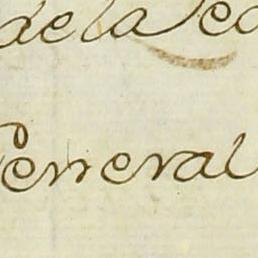 de la
General